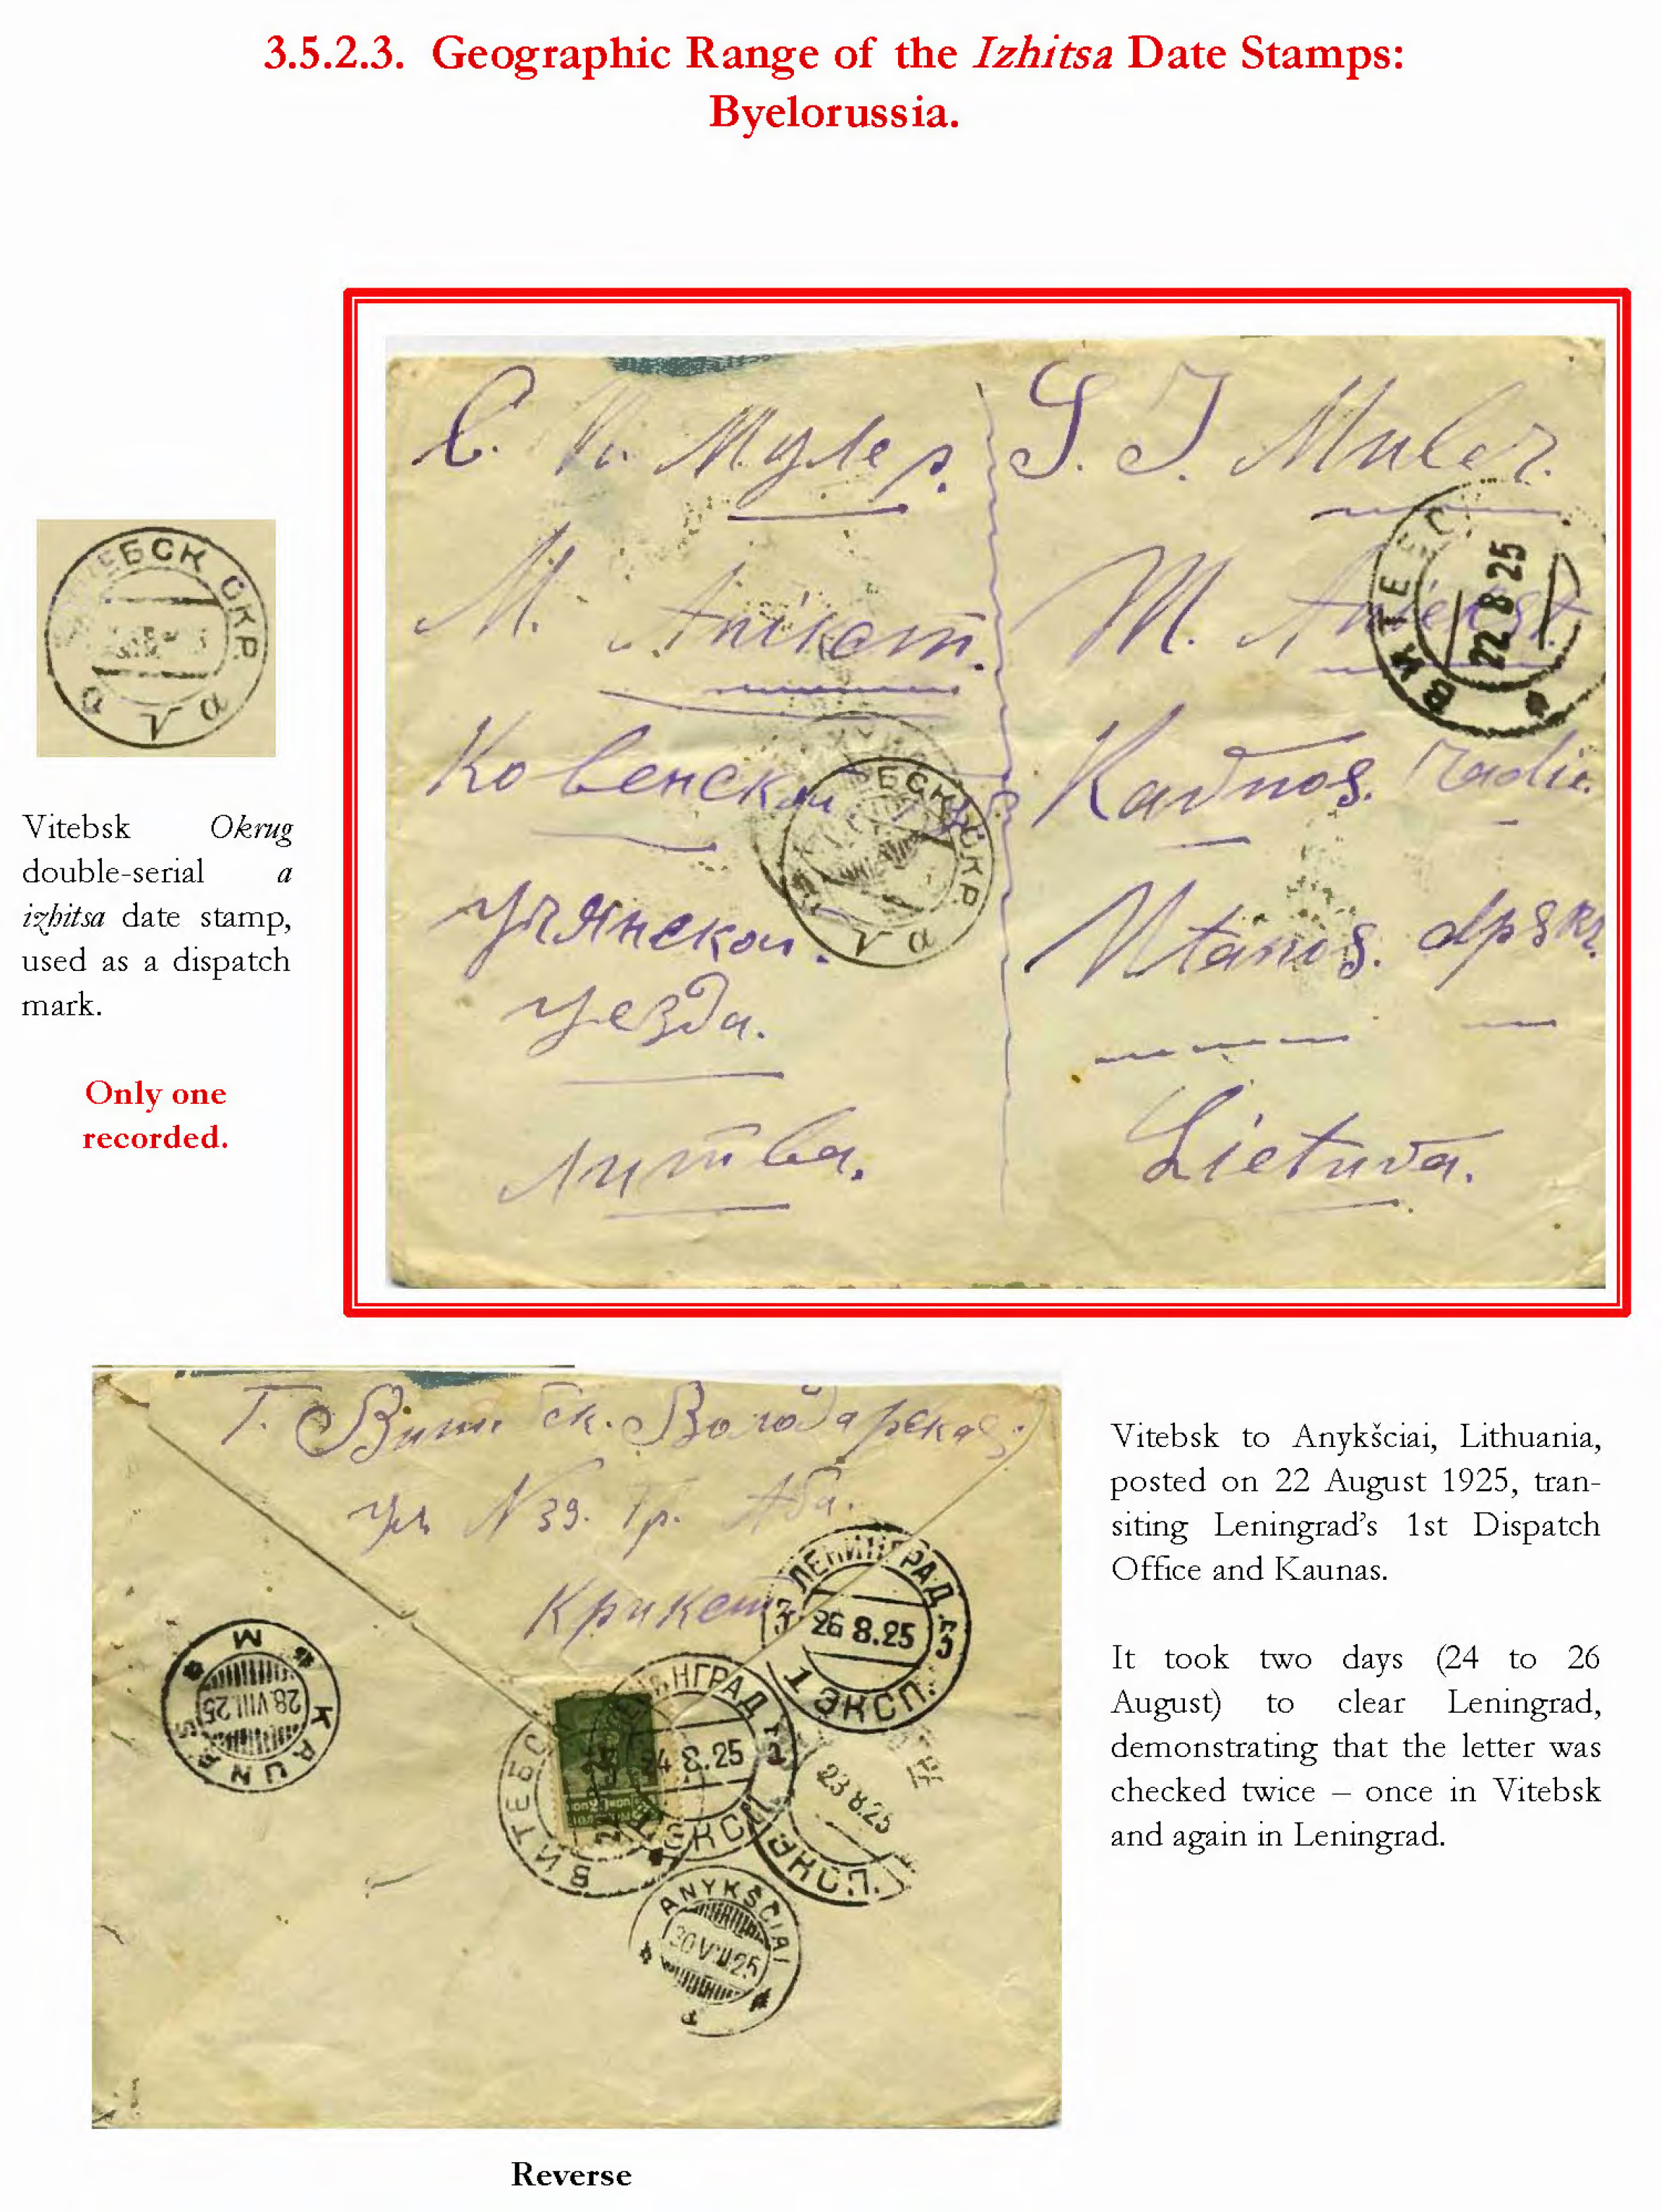 3.5.2.3. Geographic Range of the Izhitsa Date Stamps:
Byelorussia.
БСК ОКР.
а V а
Vitebsk Okrug
double-serial a
izhitsa date stamp,
used as a dispatch
mark.
Only one
recorded.
С. Мулер.
М.
Ковенской
уезда.
Литва.
S. J. Muler.
M.
Kaunos.
Utenos. apskr.
Lietuva.
ВИТЕБС
22 8 25
БСК ОКР
V а
Г. Витебск. Володарская
ул N 39. Гр. Аба.
Крикст
ЛЕНИНГРАД
З 26 8.25 З
1 ЭКСП.
НГРАД
24 8.25
ЭКСП
23 8.25
ЭКСП.
ВИТЕБС
KAUNAS
M
28.VIII.25
ANYKŠČIAI
30 VIII 25
Vitebsk to Anykšciai, Lithuania,
posted on 22 August 1925, tran-
siting Leningrad's 1st Dispatch
Office and Kaunas.
It took two days (24 to 26
August) to clear Leningrad,
demonstrating that the letter was
checked twice – once in Vitebsk
and again in Leningrad.
Reverse